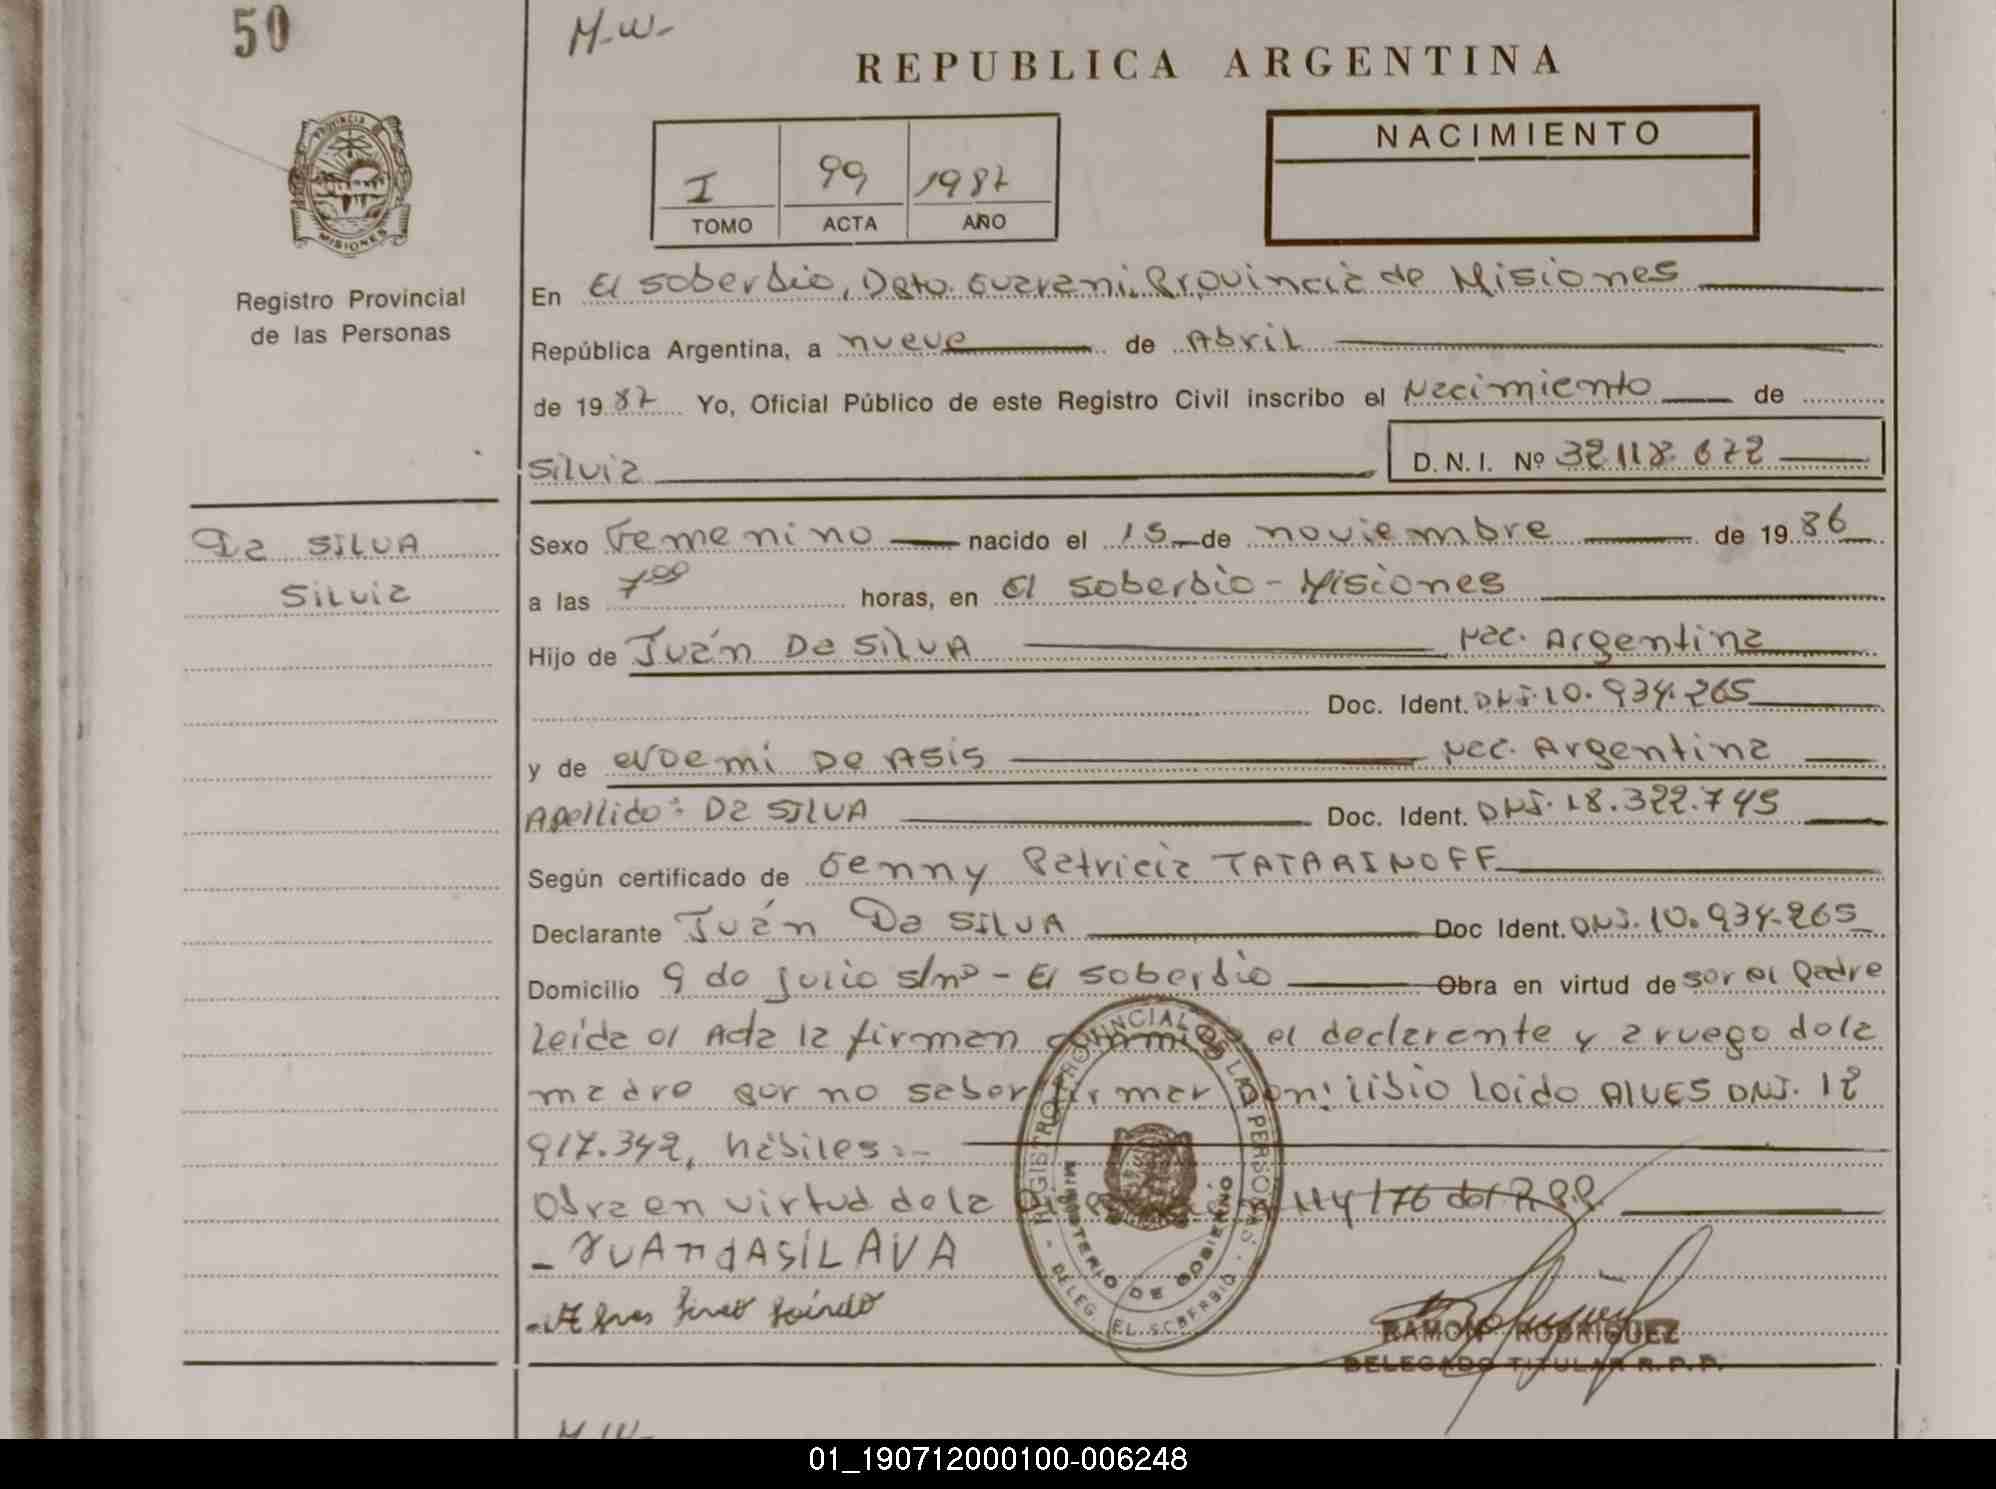 50
M-W-
REPUBLICA ARGENTINA
PROVINCIA
MISIONES
Registro Provincial
de las Personas
I 99 1987
TOMO ACTA AÑO
NACIMIENTO
En El Soberbio, Dpto. Guarani. Provincia de Misiones
República Argentina, a nueve de Abril
de 1987 Yo, Oficial Público de este Registro Civil inscribo el Nacimiento de
Silvia D.N.I. Nº 32.118.672
Da SILVA
Silvia
Sexo Femenino nacido el 15 de noviembre de 1986
a las 7⁰⁰ horas, en El Soberbio - Misiones
Hijo de Juán Da SilVA Nac. Argentina
Doc. Ident. DNI. 10.934.265
y de Noemi De ASiS Nac. Argentina
Apellido: Da SILVA Doc. Ident. DNI. 18.322.745
Según certificado de Genny Patricia TATARINOFF
Declarante Juán Da SILVA Doc Ident. DNI. 10.934.265
Domicilio 9 de Julio s/nº - El Soberbio Obra en virtud de ser el Padre
Leída el Acta la firman conmigo el declarante y a ruego de la
madre por no saber firmar Don: Libio Loido AlVES DNI. 12
917.342, hábiles:-
Obra en virtud de la 114/176 del R.P.P.
- JUAn dASILAVA
REGISTRO PROVINCIAL DE LAS PERSONAS
MINISTERIO DE GOBIERNO
- DELEG. EL SOBERBIO -
RAMON RODRIGUEZ
DELEGADO TITULAR R.P.P.
M-W-
01_190712000100-006248